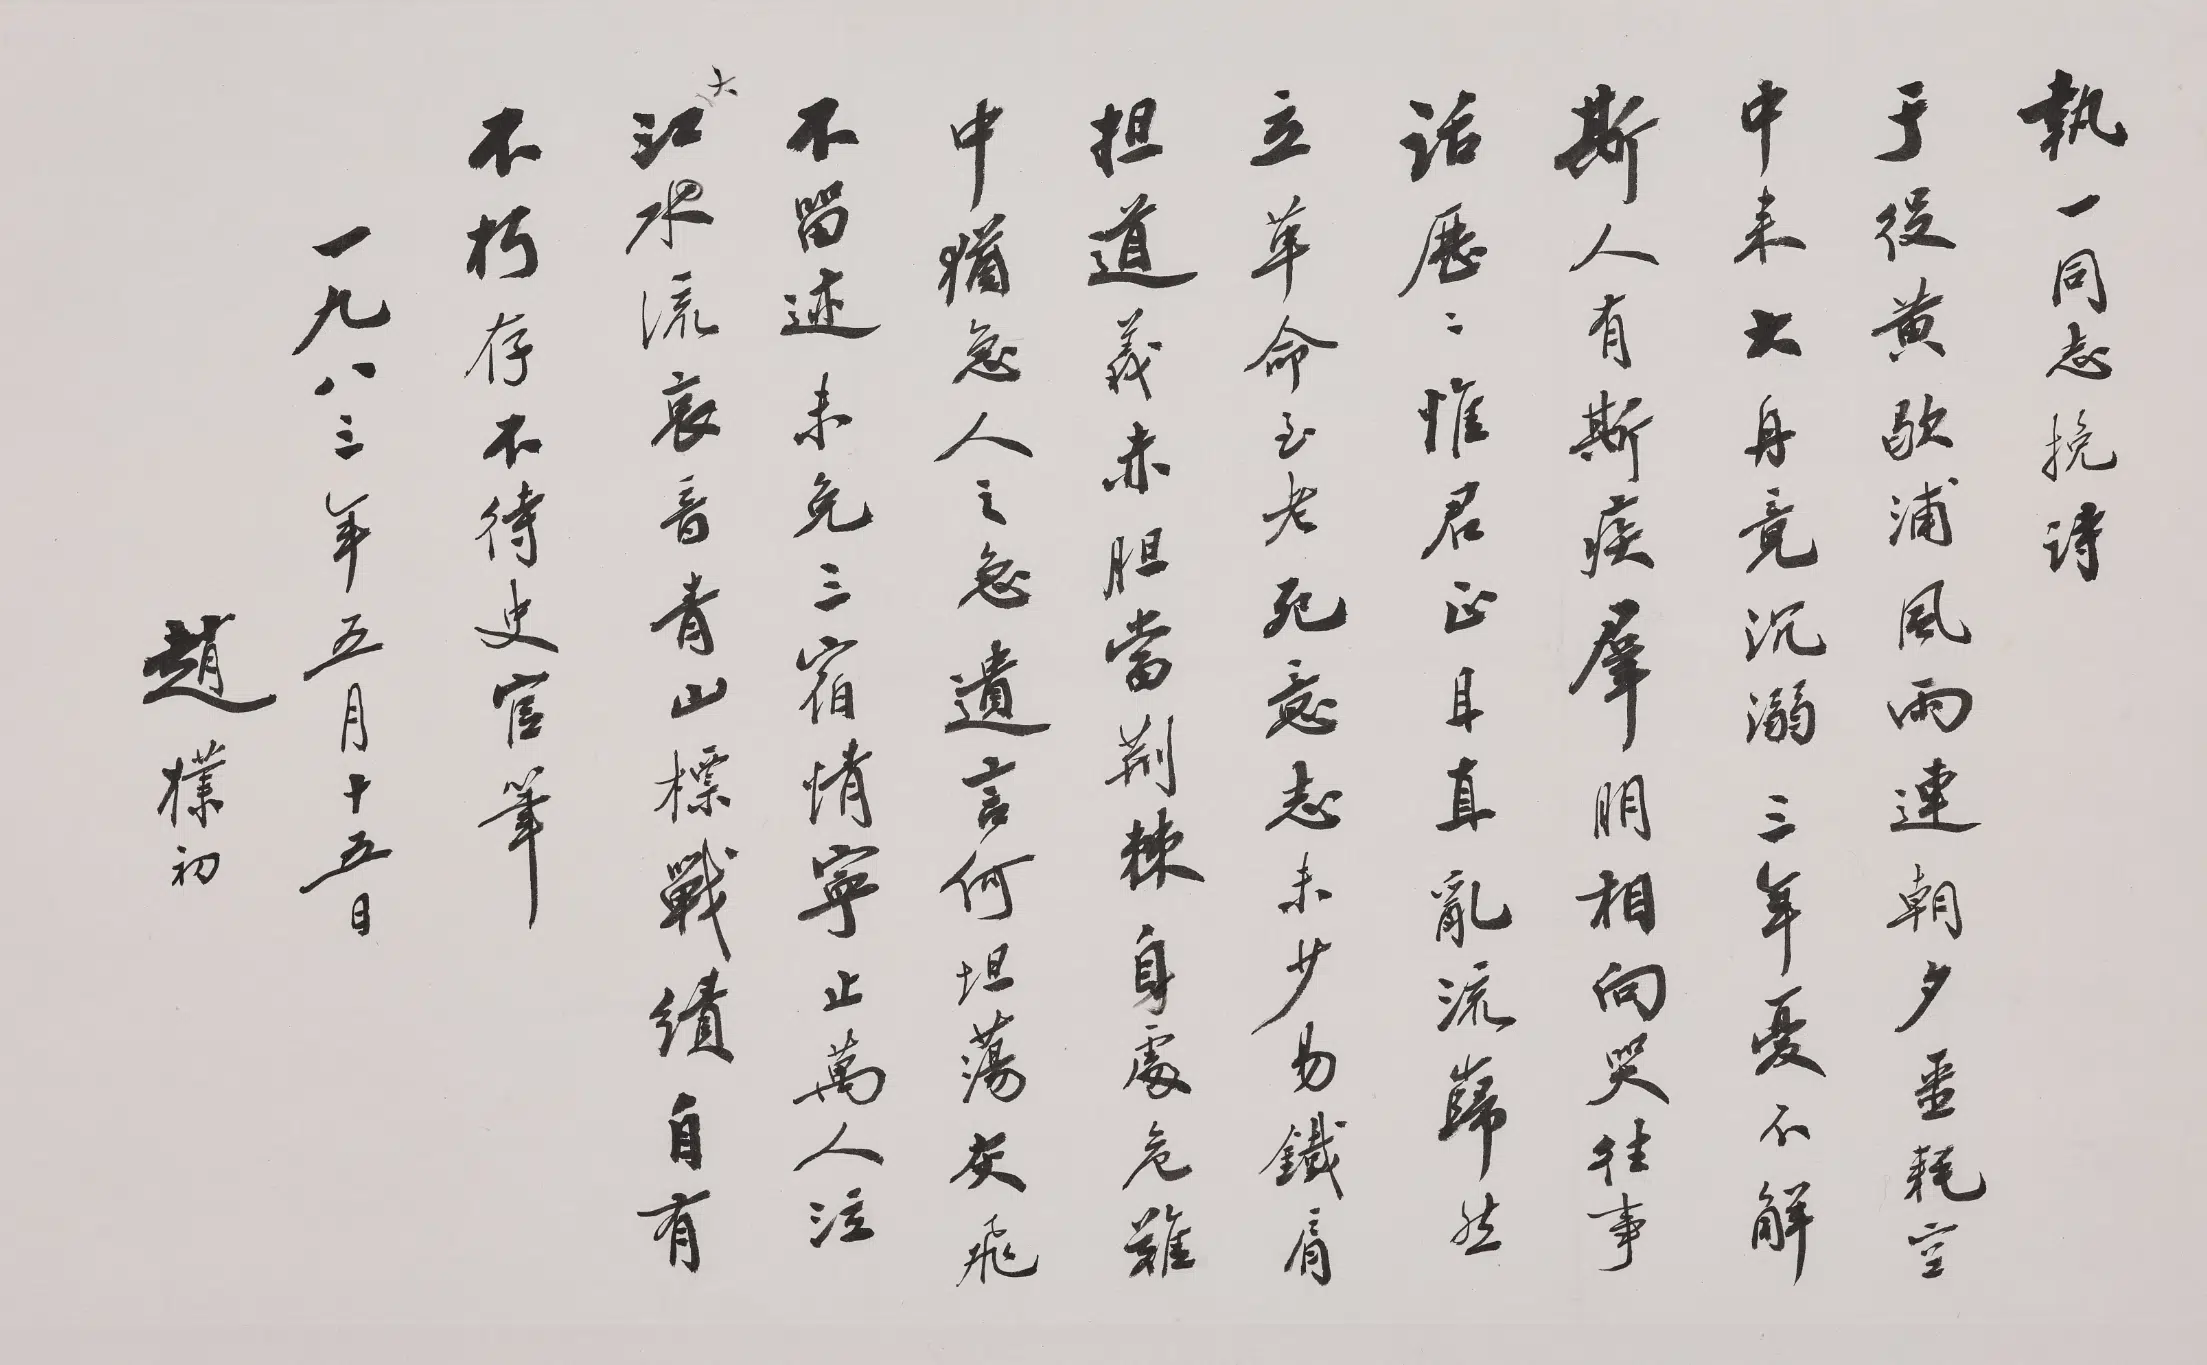 執一同志挽詩
于役黄歇浦風雨連朝夕噩耗空
中来大舟竟沉溺三年憂不解
斯人有斯疾羣朋相向哭往事
話歷〻惟君正且直亂流巋然
立革命至老死意志未少易鐵肩
担道義赤胆當荆棘身處危難
中猶急人之急遺言何坦蕩灰飛
不留迹未免三宿情寧止萬人泣
大江水流哀音青山標戰績自有
不朽存不待史官筆
一九八三年五月十五日
趙樸初